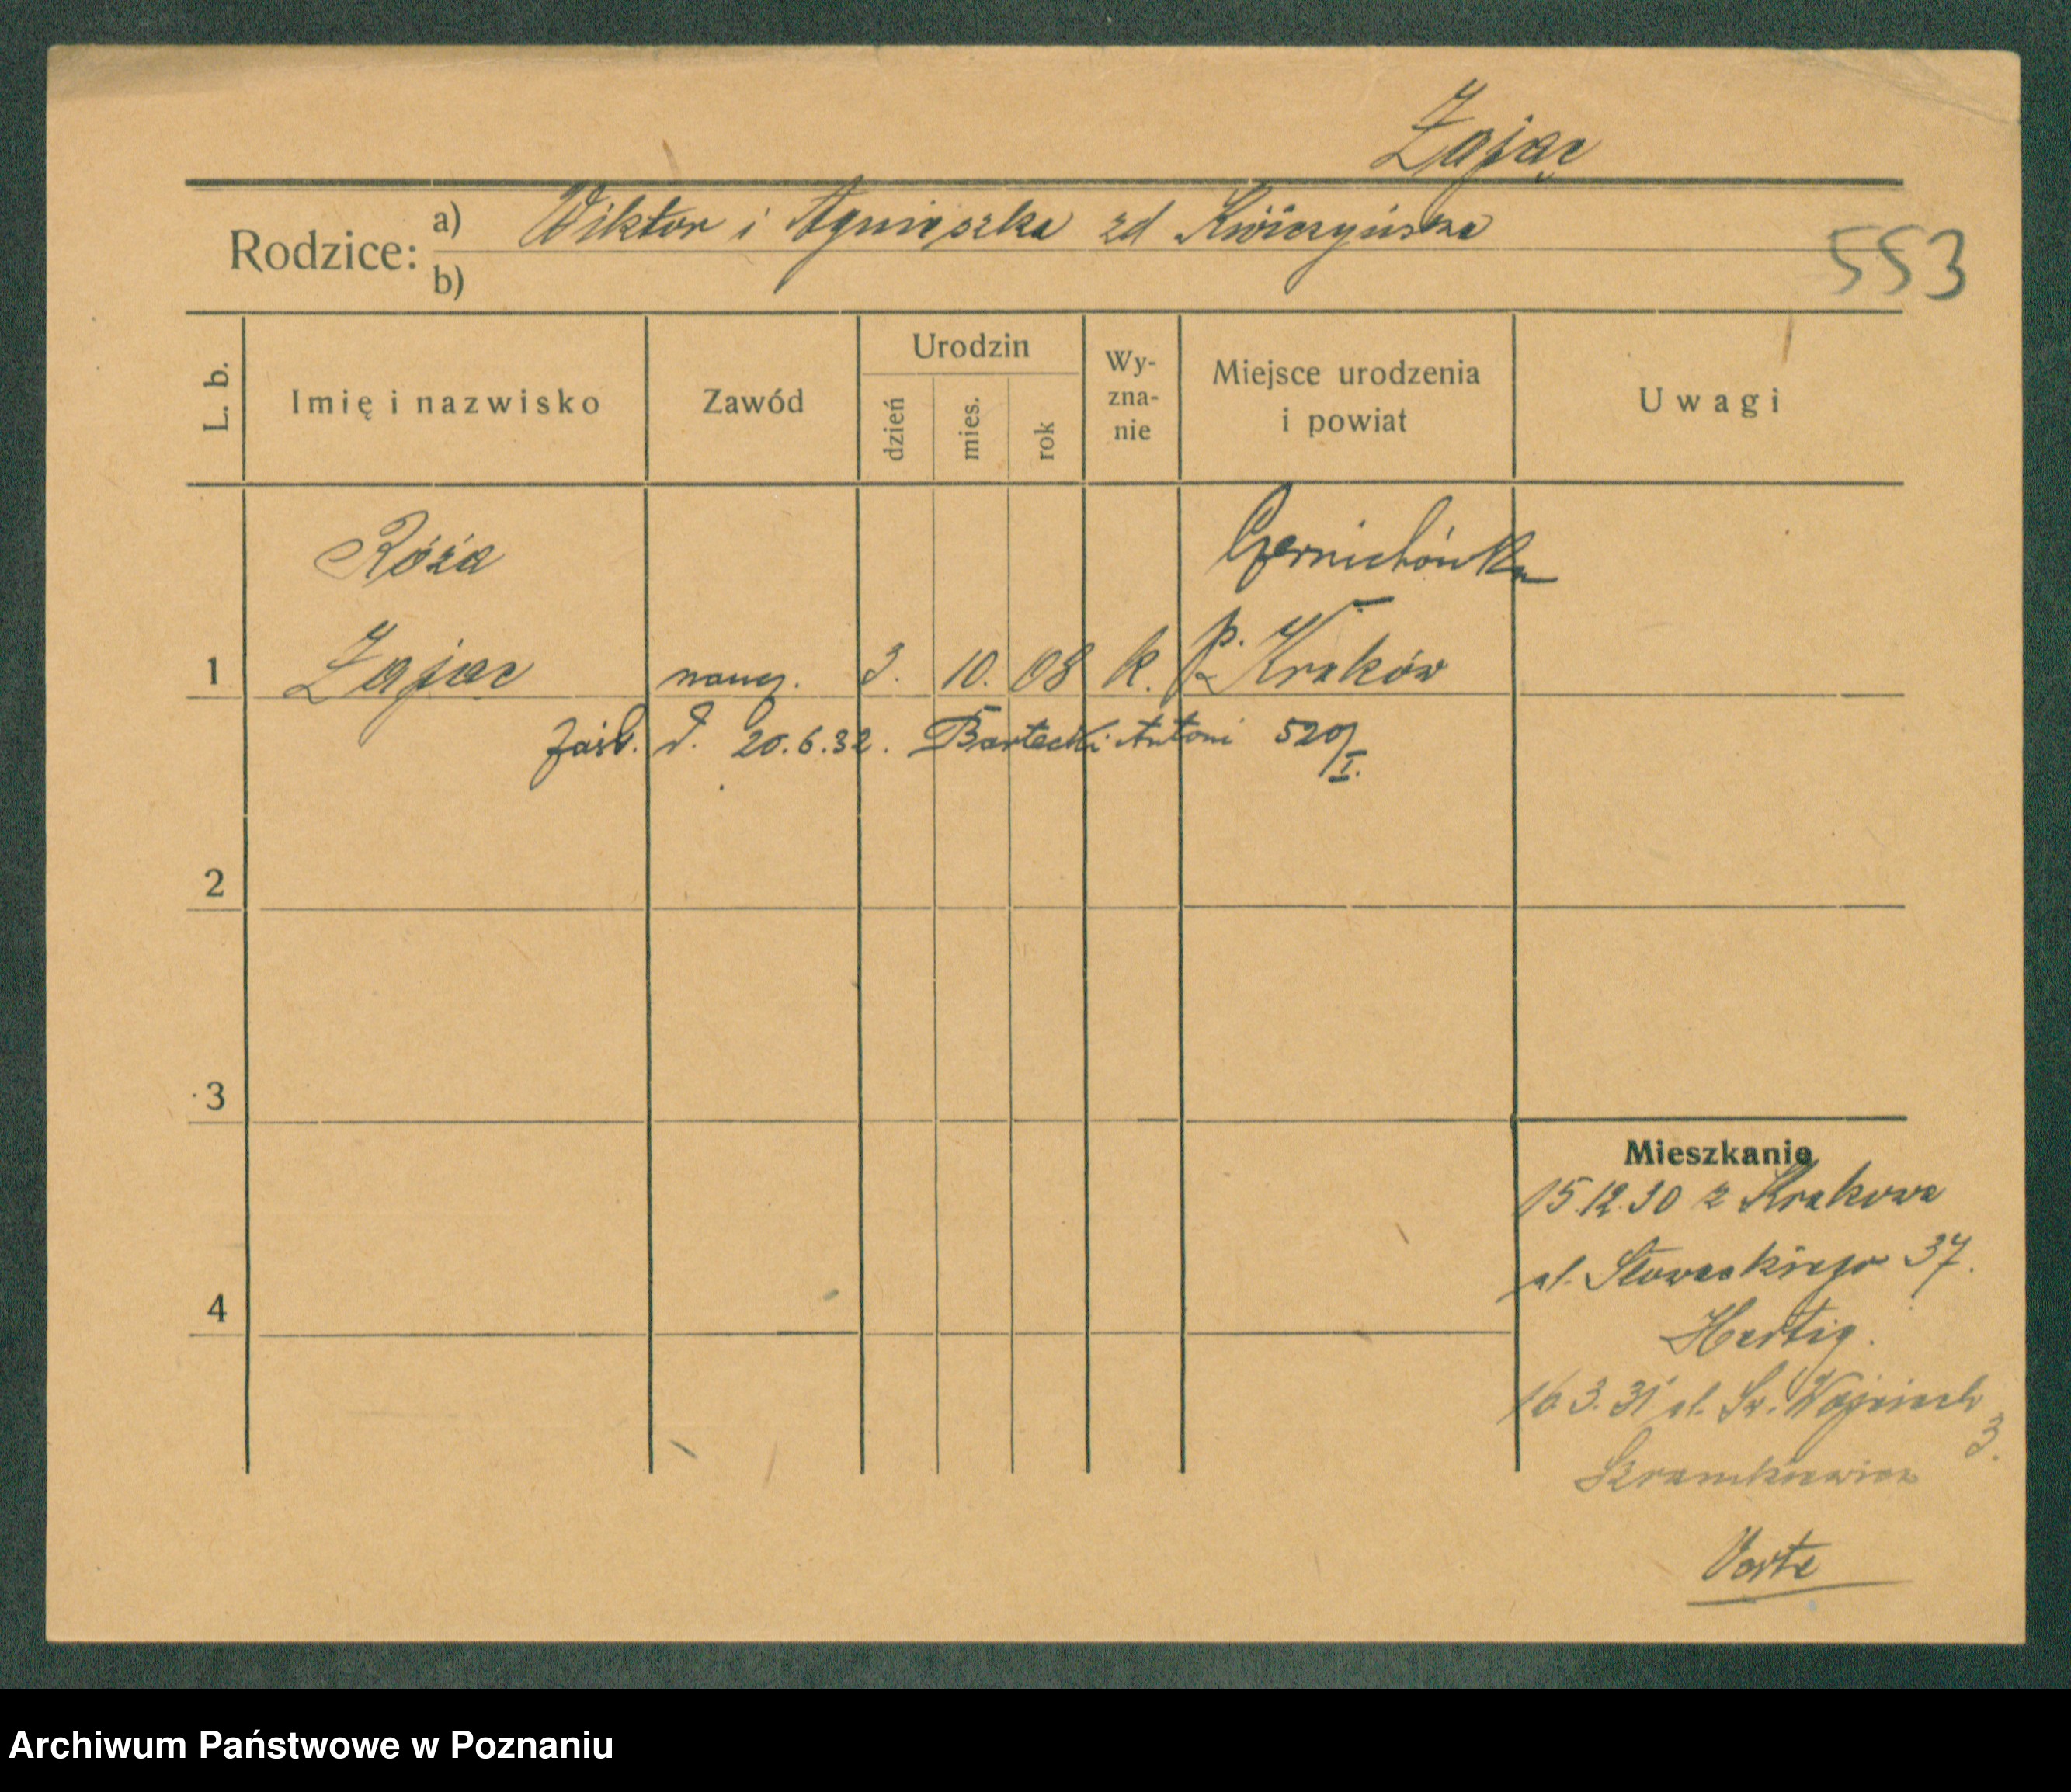 Zając
Rodzice: a) Wiktor i Agnieszka zd
b)
553
L. b. Imię i nazwisko Zawód Urodzin dzień mies. rok Wy-zna-nie Miejsce urodzenia i powiat Uwagi
Róża Czernichówka
1 Zając naucz. 3. 10. 08 k. p. Kraków
zaśl. d. 20.6.32. Bartecki Antoni 520/I.
2
3
4
Mieszkanie
15.12.30 z Krakowa
ul. Słowackiego 37.
Hertig.
16 3. 31 ul. Św. Wojciech 3.
Verte
Archiwum Państwowe w Poznaniu